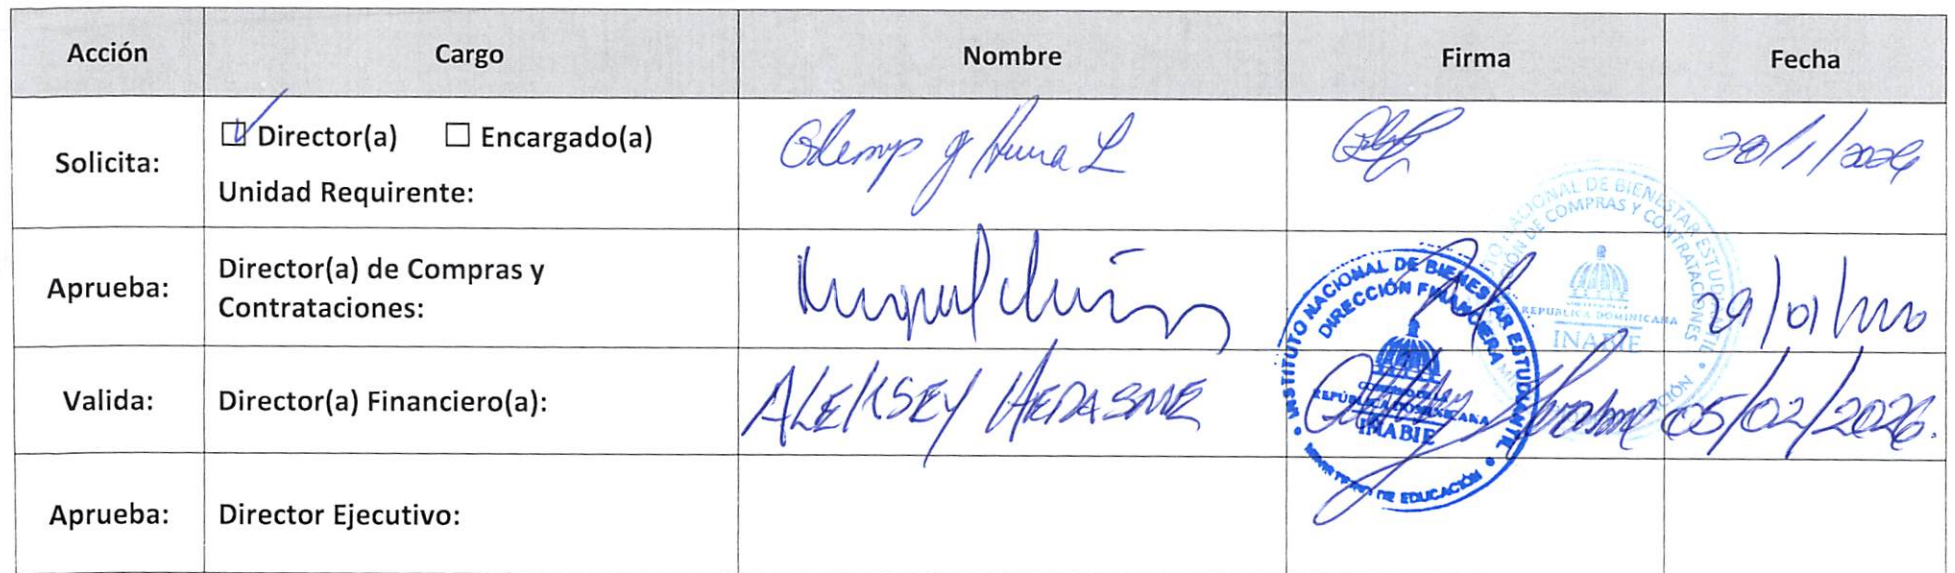 Acción Cargo Nombre Firma Fecha
Solicita: Director(a) Encargado(a)
Unidad Requirente:
28/1/2026
Aprueba: Director(a) de Compras y
Contrataciones:
29/01/
Valida: Director(a) Financiero(a): ALEKSEY HEDASME 05/02/2026.
Aprueba: Director Ejecutivo:
INSTITUTO NACIONAL DE BIENESTAR ESTUDIANTIL
DIRECCIÓN FINANCIERA
REPÚBLICA DOMINICANA
INABIE
MINISTERIO DE EDUCACIÓN
NACIONAL DE BIENESTAR ESTUDIANTIL
DE COMPRAS Y CONTRATACIONES
REPÚBLICA DOMINICANA
INABIE